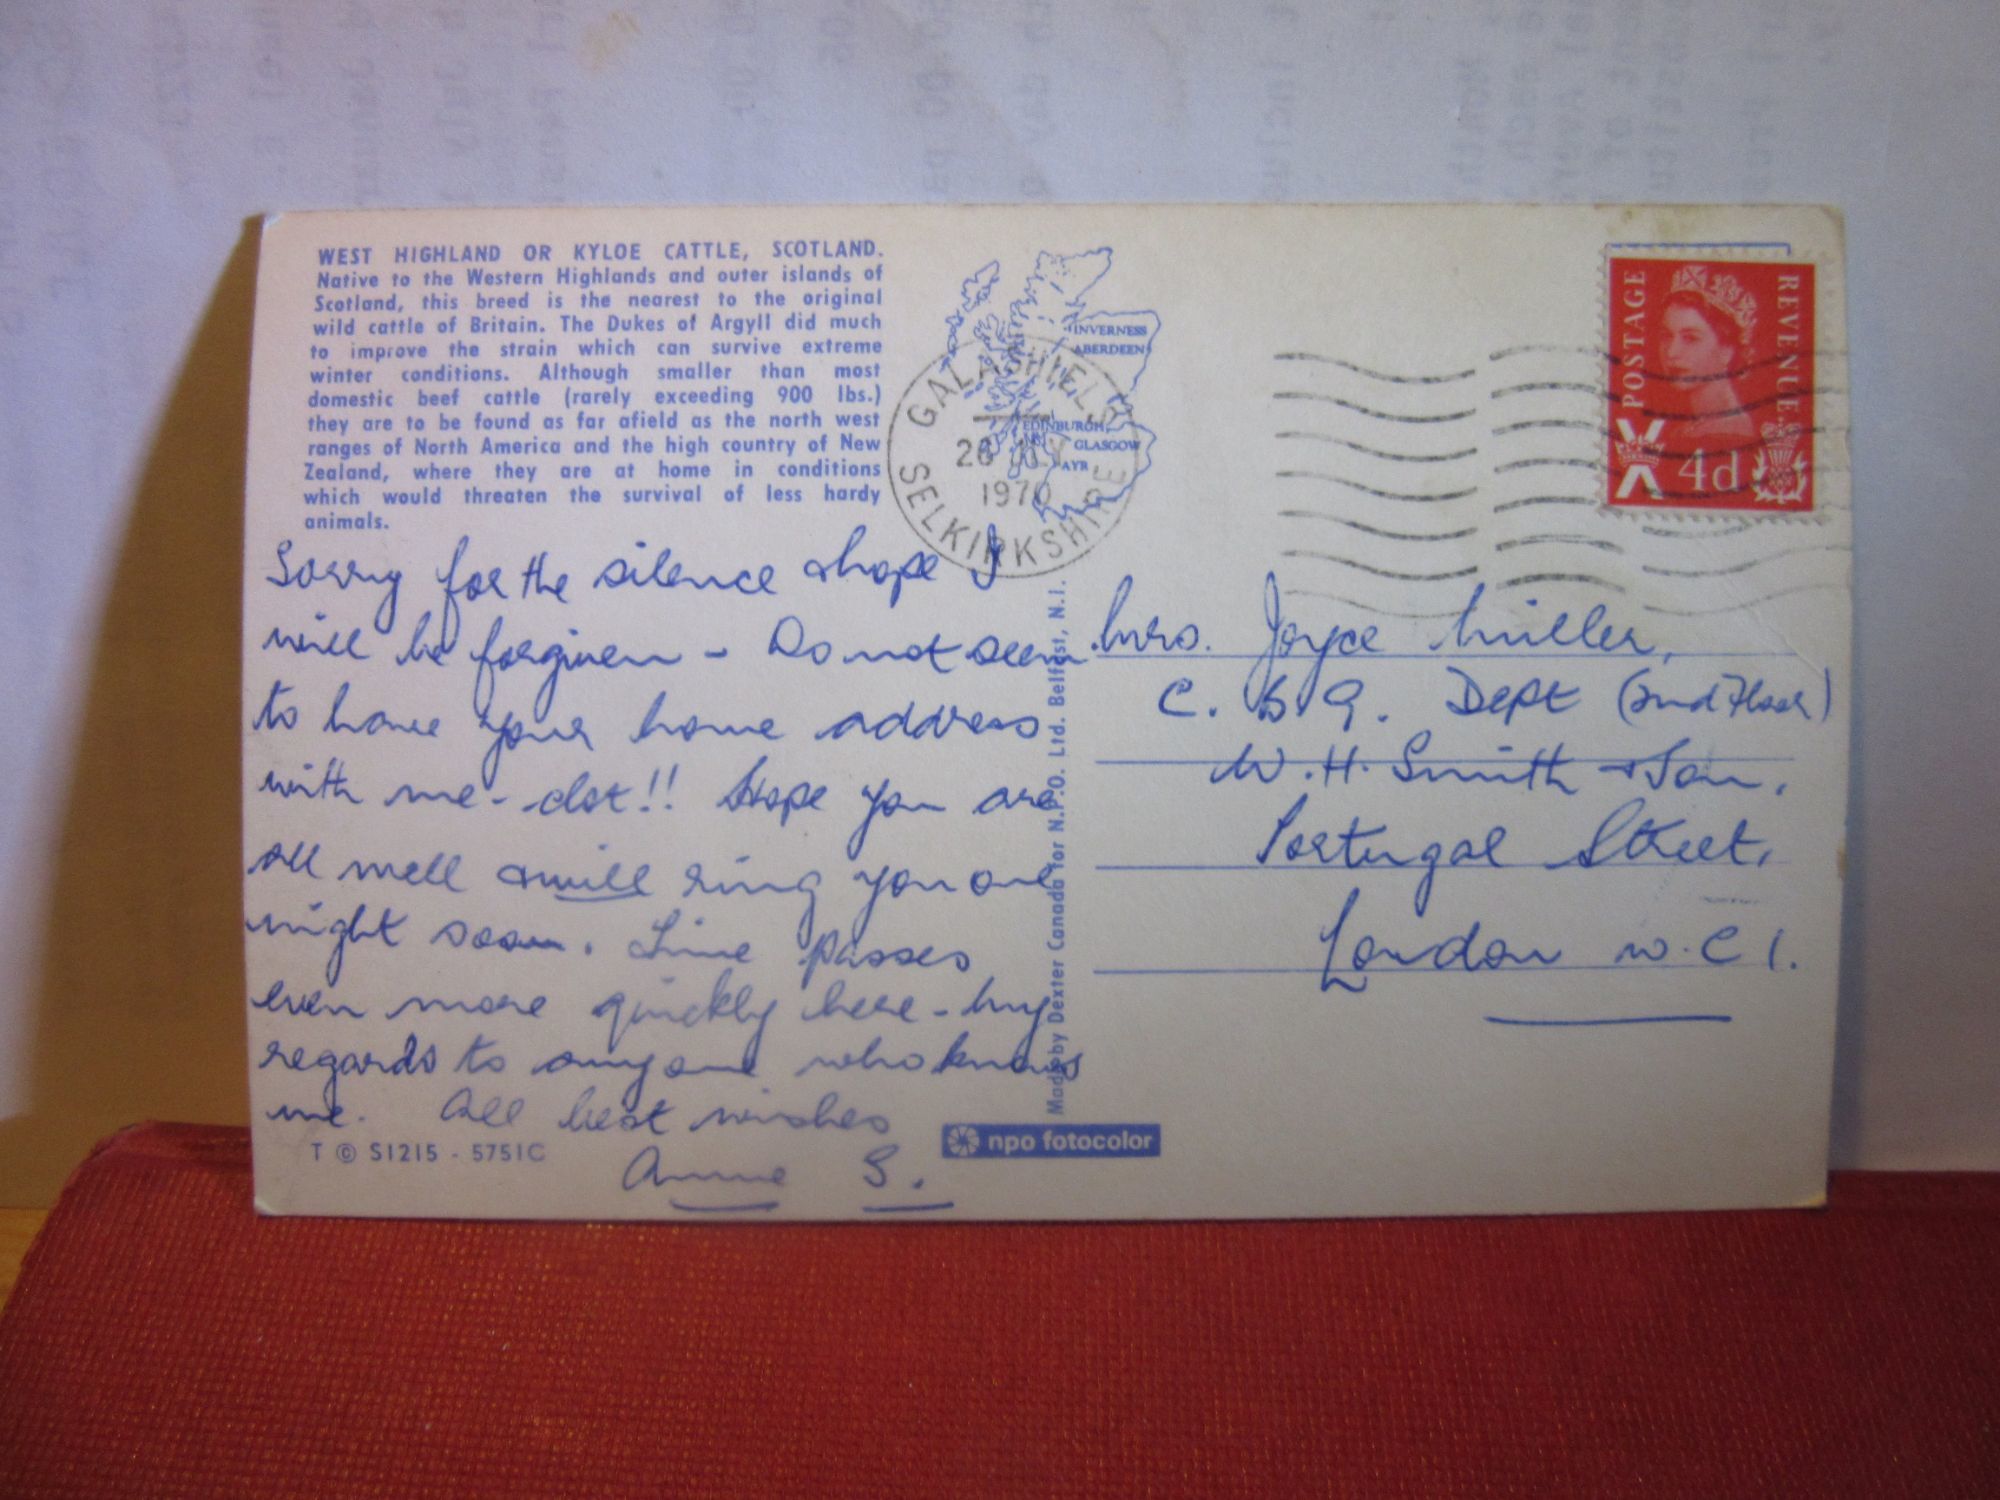 WEST HIGHLAND OR KYLOE CATTLE, SCOTLAND.
Native to the Western Highlands and outer islands of
Scotland, this breed is the nearest to the original
wild cattle of Britain. The Dukes of Argyll did much
to improve the strain which can survive extreme
winter conditions. Although smaller than most
domestic beef cattle (rarely exceeding 900 lbs.)
they are to be found as far afield as the north west
ranges of North America and the high country of New
Zealand, where they are at home in conditions
which would threaten the survival of less hardy
animals.
Sorry for the silence & hope I
will be forgiven - Do not seem
to have your home address
with me - clot!! Hope you are
all well & will ring you one
night soon. Time passes
even more quickly here - my
regards to anyone who knows
me. All best wishes
Anne S.
T © S1215 - 5751C
INVERNESS
ABERDEEN
EDINBURGH
GLASGOW
AYR
GALASHIELS
JLY
1970
SELKIRKSHIRE
Made by Dexter Canada for N.P.O. Ltd. Belfast, N.I.
npo fotocolor
POSTAGE
REVENUE
4d
Mrs. Joyce Miller,
Dept (2nd Floor)
W. H. Smith & Son,
Portugal Street,
London W.C 1.